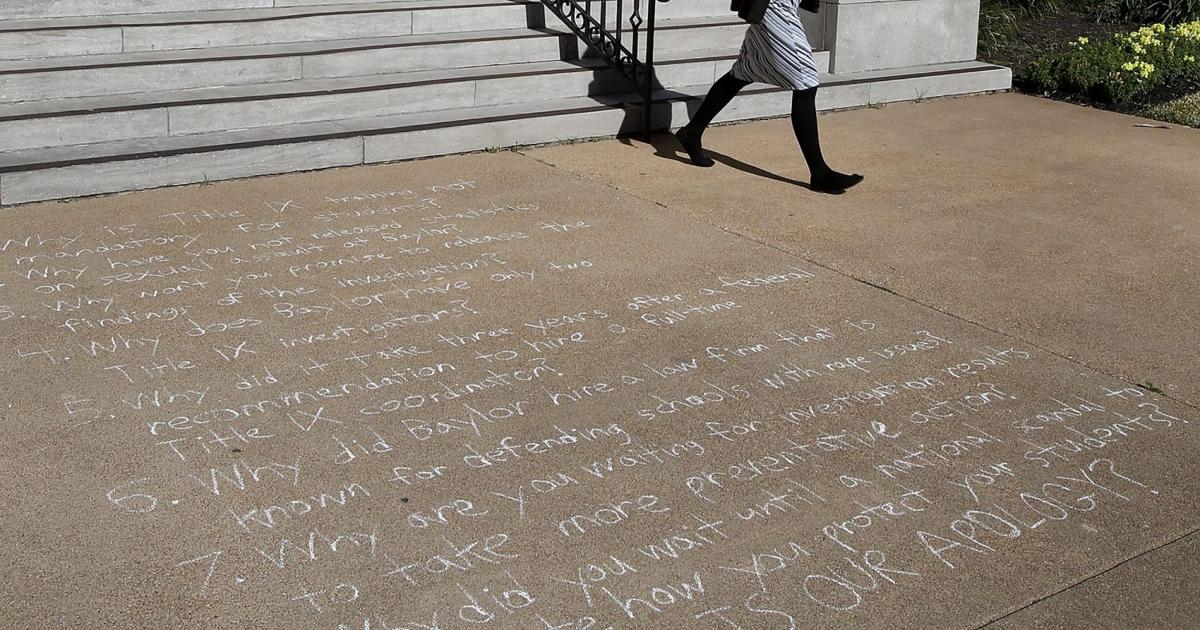 Why is Title IX training not
mandatory for students?
Why have you not released statistics
on sexual assault at Baylor?
3. Why won't you promise to release the
findings of the investigation?
4. Why does Baylor have only two
Title IX investigators?
5. Why did it take three years after a federal
recommendation to hire a full-time
Title IX coordinator?
6. Why did Baylor hire a law firm that is
known for defending schools with rape issues?
7. Why are you waiting for investigation results
to take more preventative action?
Why did you wait until a national scandal to
how you protect your students?
IS OUR APOLOGY?